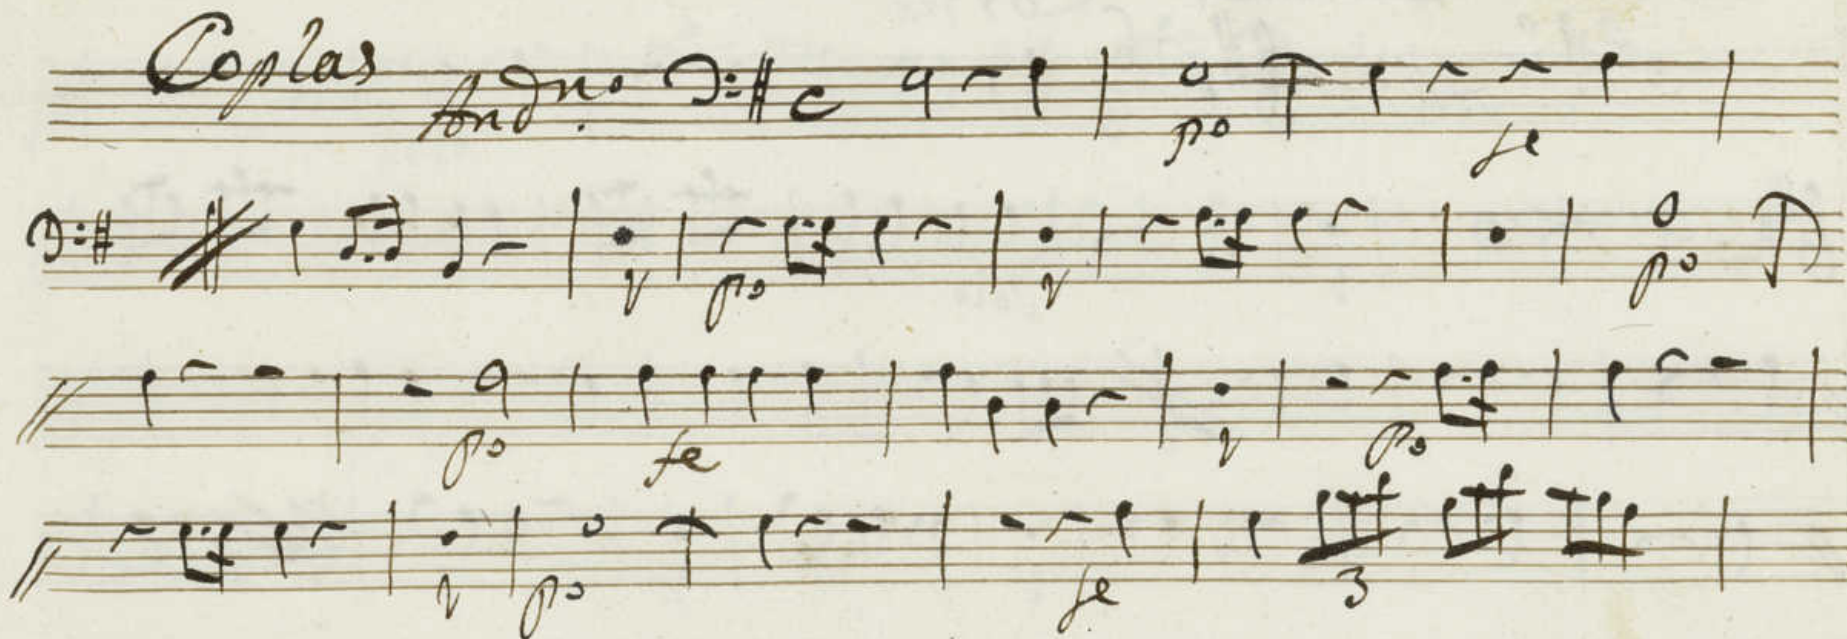 Coplas Andno.
po fe
po po
po fe po
po fe 3